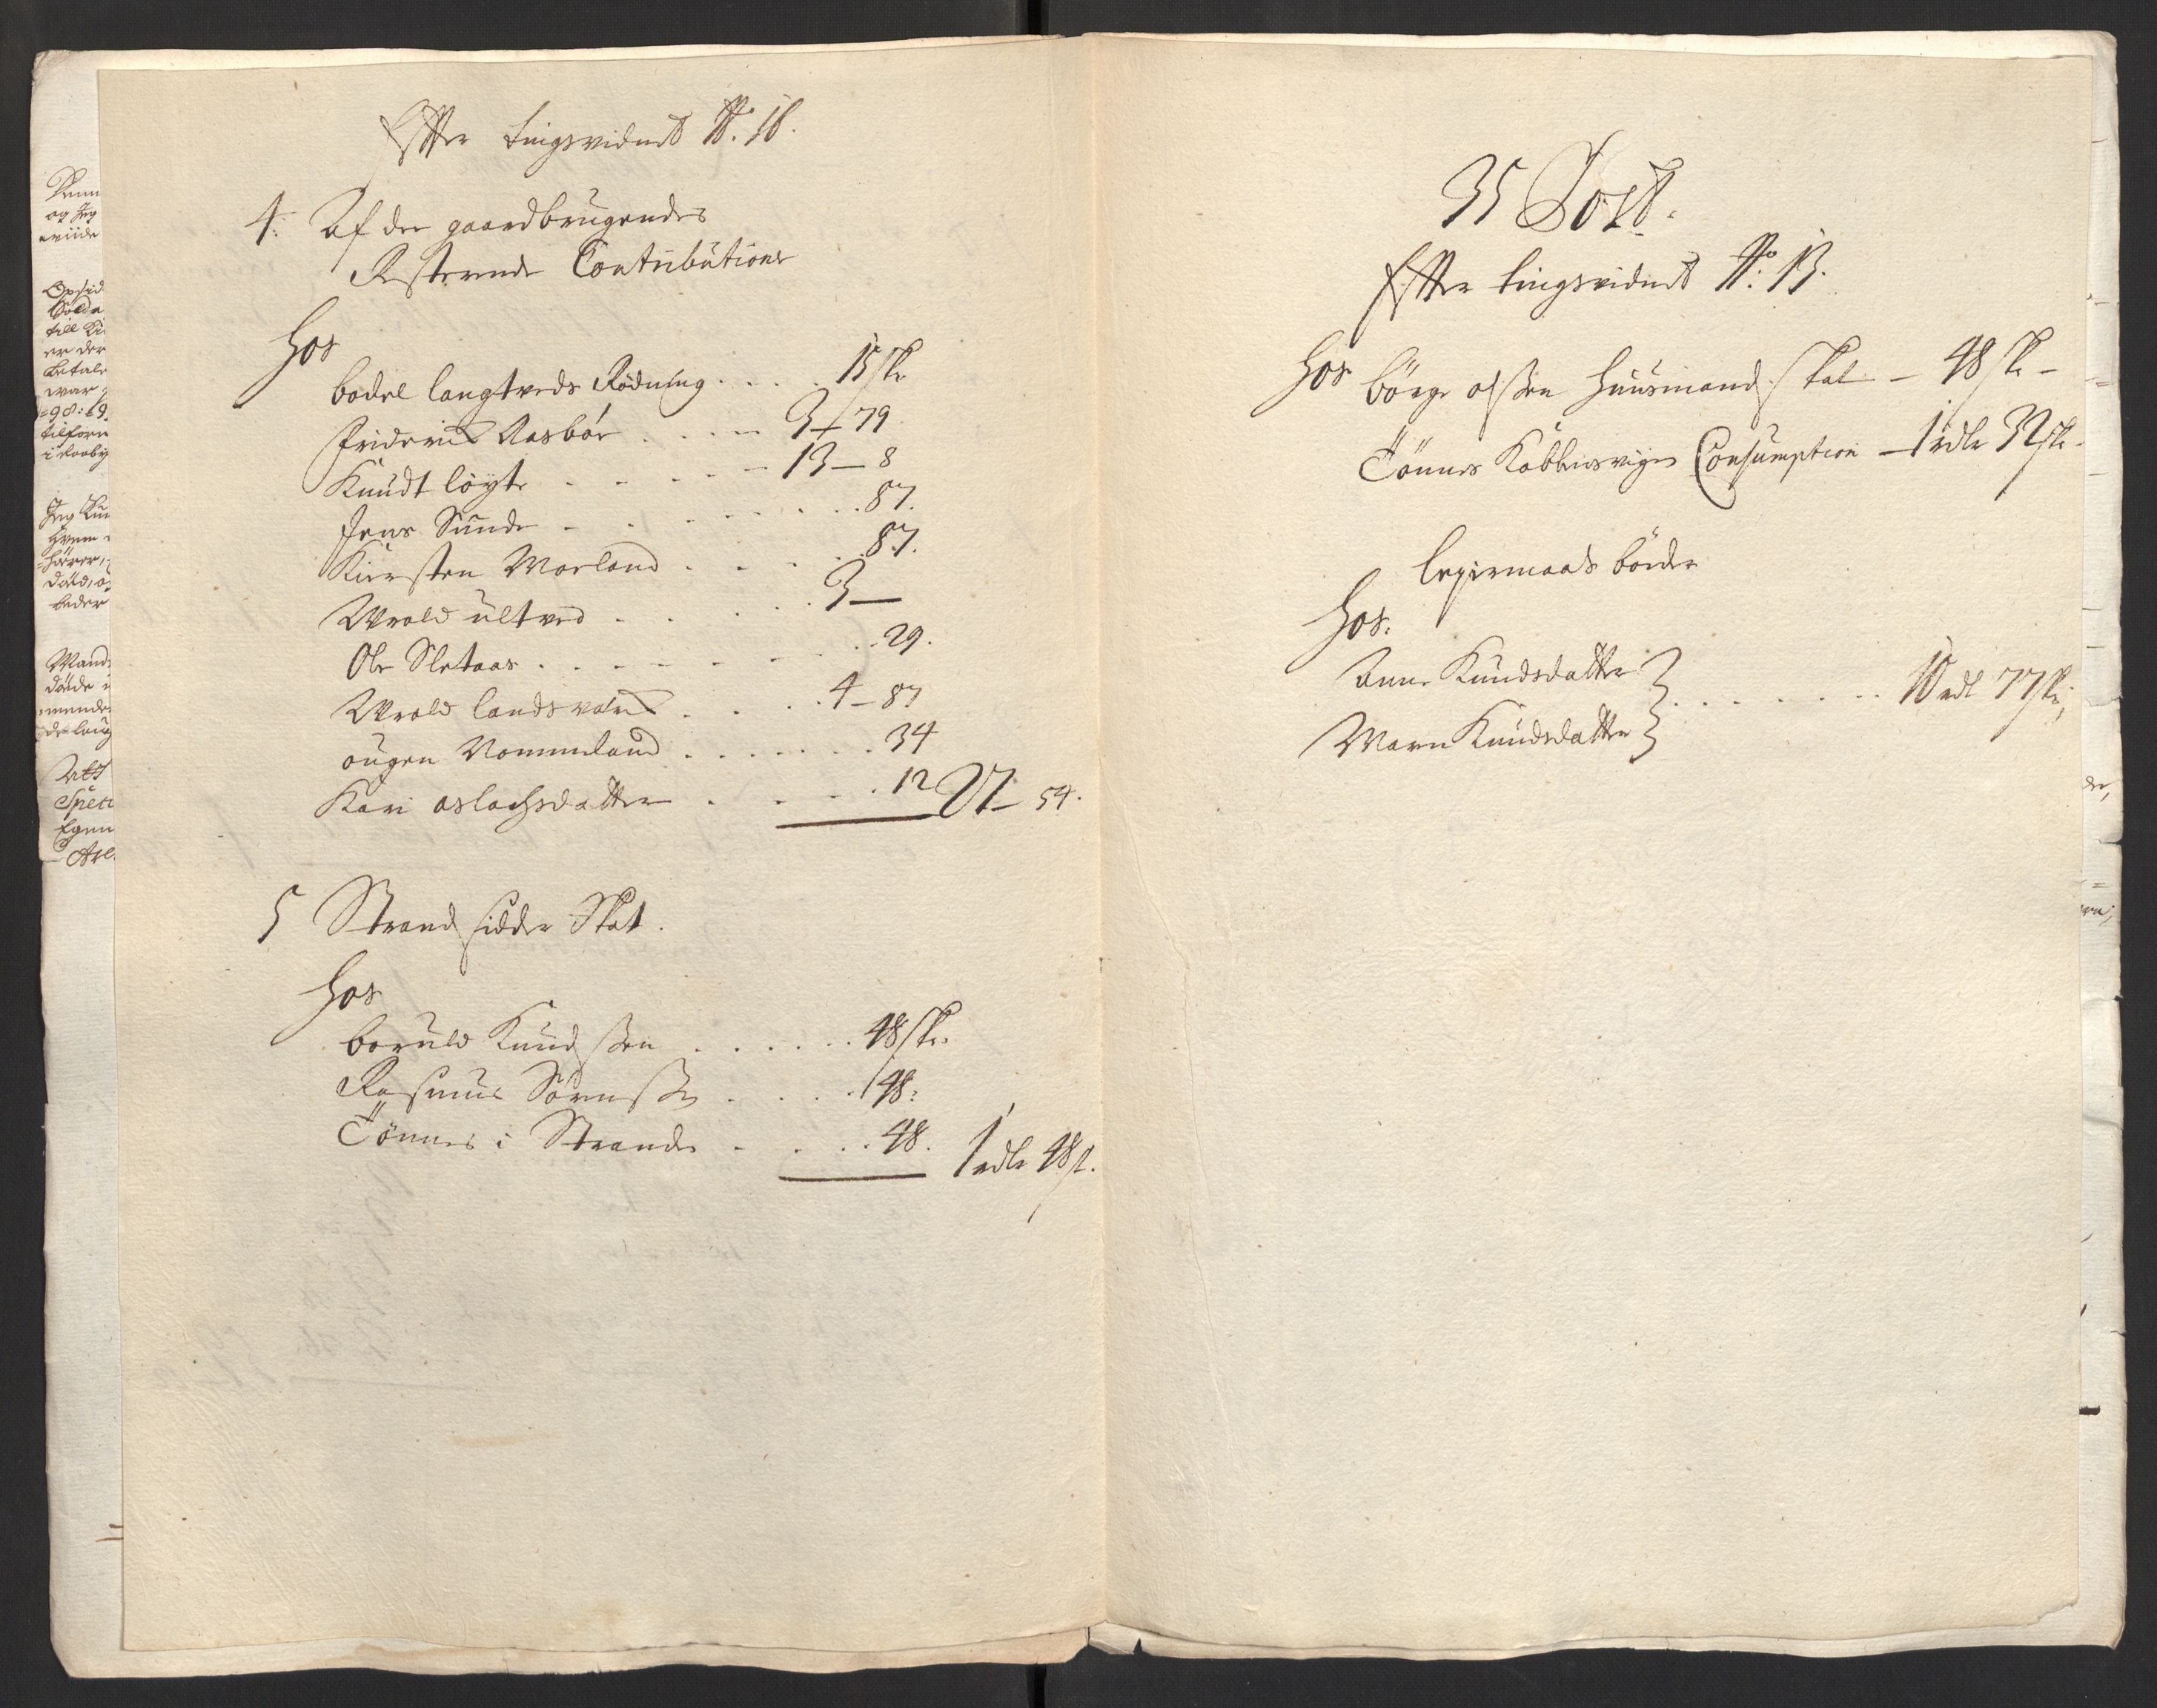 Effter tingsvidnet No: 18.
4. Af der gaardbrugendes
Resterende Contributions
Hos
bodel langtveds Rødning . . . . 15 sk
Friderich Aasbór . . . . 3 – 79
Knudt löyte . . . . 13 – 8
Jens Sunde . . . . 87.
Kiersten Morland . . . 87.
Wrold ültved . . . . 3 –
Ole Sletaas . . . . . 29.
Wrold landsverk . . . . 4 – 87
ougen Nommeland . . . . . 34
Kari aslachsdatter . . . . 12 27 – 54.
5 Strand sidder Skat.
Hos
boruld Knudssen . . . . . . 48 sk.
Rasmus Sörenss. . . . . 48:
Tönnes i Strande . . . . 48. 1 rdlr 48 s.
35 Post.
Effter tingsvidnet No: 13.
Hos börge olssen huusmand skat – 48 sk –
Tönnes Kabbusvigs Consumption – 1 rdlr 32 sk –
legermaals böder
Hos:
Anne Knudsdatter
Maren Knudsdatter } . . . . . . . 10 rdl 77 sk;
Spec
Egen